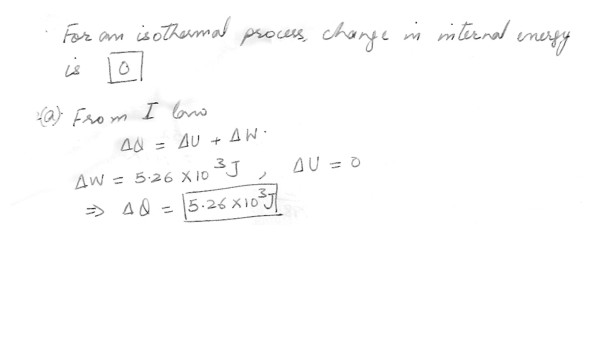 For an isothermal process, change in internal energy
is 0
(a) From I law
ΔQ = ΔU + ΔW.
ΔW = 5.26 × 10³ J , ΔU = 0
⇒ ΔQ = 5.26 × 10³ J